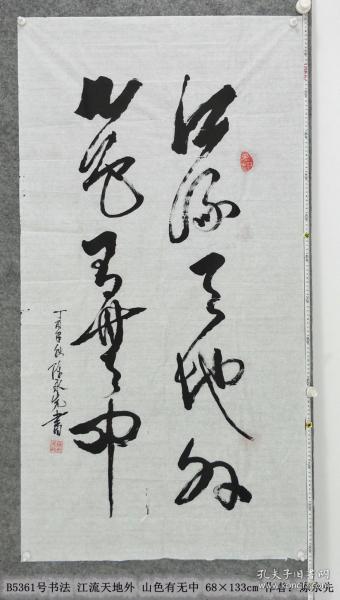 江流天地外
山色有無中
丁亥年秋陈永先書
B5361号书法 江流天地外 山色有无中 68×133cm 作者：陈永先
孔夫子旧书网